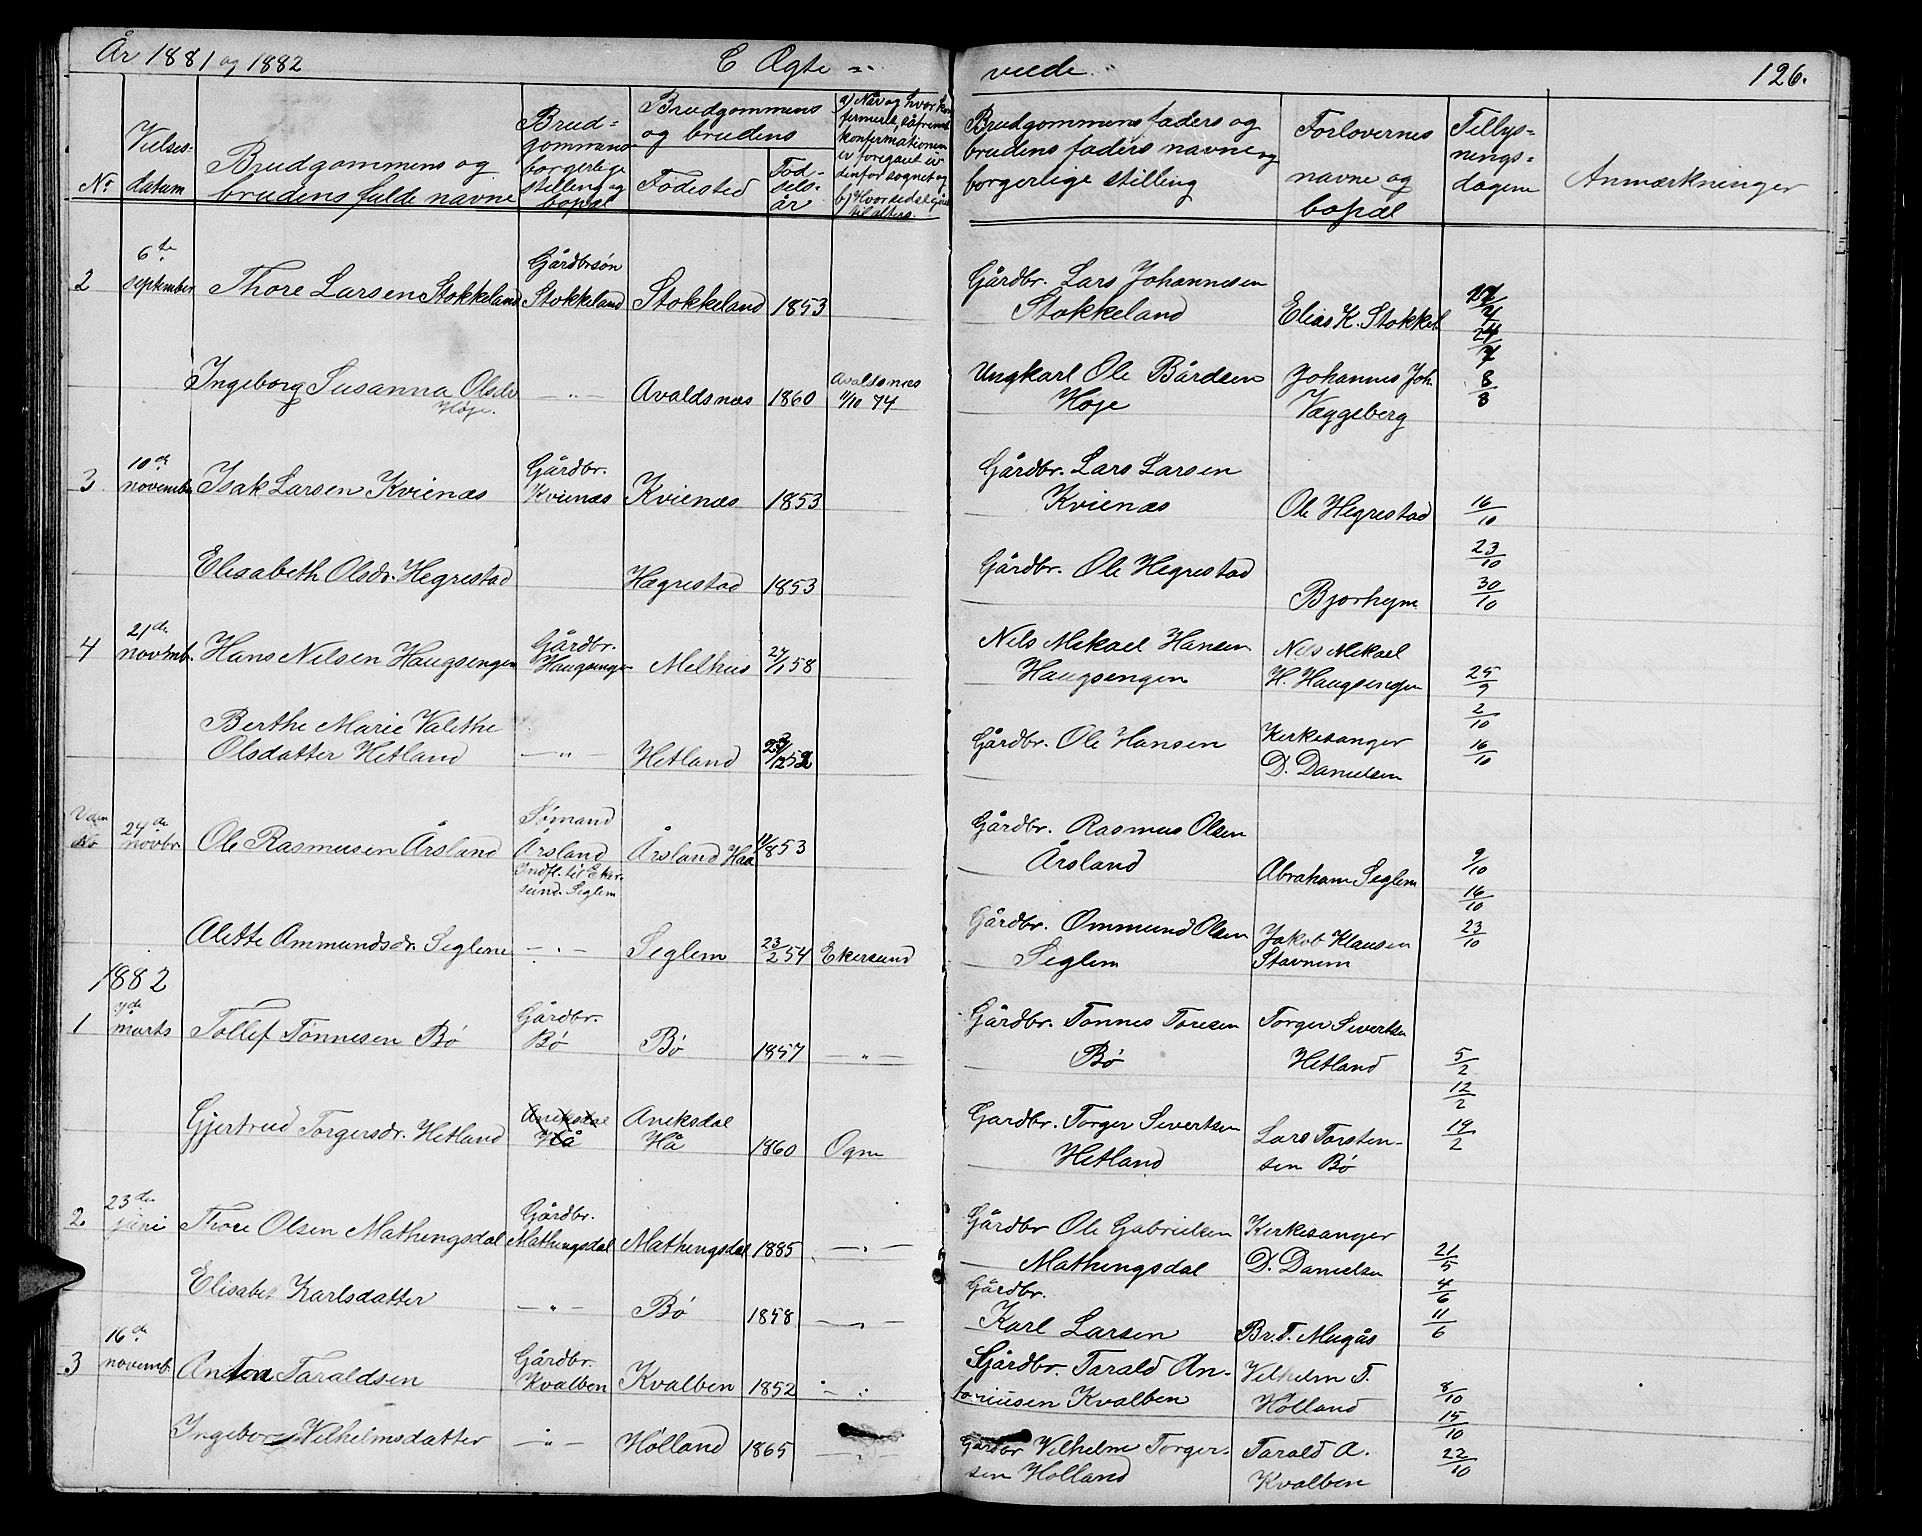 År 1881 og 1882
E Ægte -
viede
126.
No
Vielses-
datum
Brudgommens og
brudens fulde navne
Brud-
gommens
borgerlige
stilling og
bopæl
Brudgommens
og brudens
Födested
Föd-
sels-
år
Brudgommens faders og
brudens faders navne og
borgerlige stilling
Forlovernes
navne og
bopæl
Tillys-
nings-
dagene
Anmærkninger
2
6te
september
Thore Larsen Stokkeland
Gårdbrsön
Stokkeland
Stokkeland
1853
Gårdbr. Lars Johannesen
Stokkeland
Elias K. Stokkel.
Ingeborg Susanna Olsdr
Höje.
— " —
Avaldsnæs
1860
Avaldsnæs
11/10 74
Ungkarl Ole Bårdsen
Höje
Johannes Joh.
Væggeberg
3
10de
novembr
Isak Larsen Kvienæs
Gårdbr.
Kvienæs
Kvienæs
1853
Gårdbr. Lars Larsen
Kvienæs
Ole Hegrestad
16/10
Elisabeth Olsdr. Hegrestad
Hægrestad
1853
Gårdbr. Ole Hegrestad
Bjorheym
23/10
30/10
4
21de
novemb.
Hans Nilsen Haugsengen
Gårdbr.
Haugsengen
Melhus
27/1 58
Nils Mekael Hansen
Haugsengen
Nils Mekael
H. Haugsengen
25/9
Berthe Marie Valethe
Olsdatter Hetland
— " —
Hetland
Gårdbr. Ole Hansen
Kirkesanger
D. Danielsen
2/10
16/10
Uden
No
24de
novbr
Ole Rasmusen Årsland
Sömand
Årsland
Indfl. til Eker-
sund. Seglem
Årsland Haa
11/8 53
Gårdbr. Rasmus Olsen
Årsland
Abraham Seglem
9/10
16/10
Alette Ommundsdr. Seglem
— " —
Seglem
23/2 54
Ekersund
Gårdbr. Ommund Olsen
Seglem
Jakob Klausen
Stavnem
23/10
1882
1
7de
marts
Tollef Tönnesen Bö
Gårdbr.
Bö
Bö
1857
— " —
Gårdbr. Tönnes Toresen
Bö
Torger Sivertsen
Hetland
5/2
12/2
Gjertrud Torgersdr. Hetland
Aniksdal
Hå
Aniksdal
Hå
1860
Ogne
Gardbr. Torger Sivertsen
Hetland
Lars Torsten-
sen Bö
19/2
2.
23de
juni
Thore Olsen Mathengsdal
Gårdbr.
Mathengsdal
Mathengsdal
1885
— " —
Gårdbr Ole Gabrielsen
Mathengsdal
Kirkesanger
D. Danielsen
21/5
Elisabet Karlsdatter
— " —
Bö
1858
— " —
Gårdbr.
Karl Larsen
Br. T. Mugås
4/6
11/6
3
16de
novemb.
Anton Taraldsen
Gårdbr.
Kvalben
Kvalben
1852
— " —
Gårdbr. Tarald An-
toniusen Kvalben
Vilhelm T.
Hölland
8/10
15/10
Ingeborg Vilhelmsdatter
— " —
Hölland
1865
— " —
Gårdbr Vilhelm Torger-
sen Hölland
Tarald A.
Kvalben
22/10